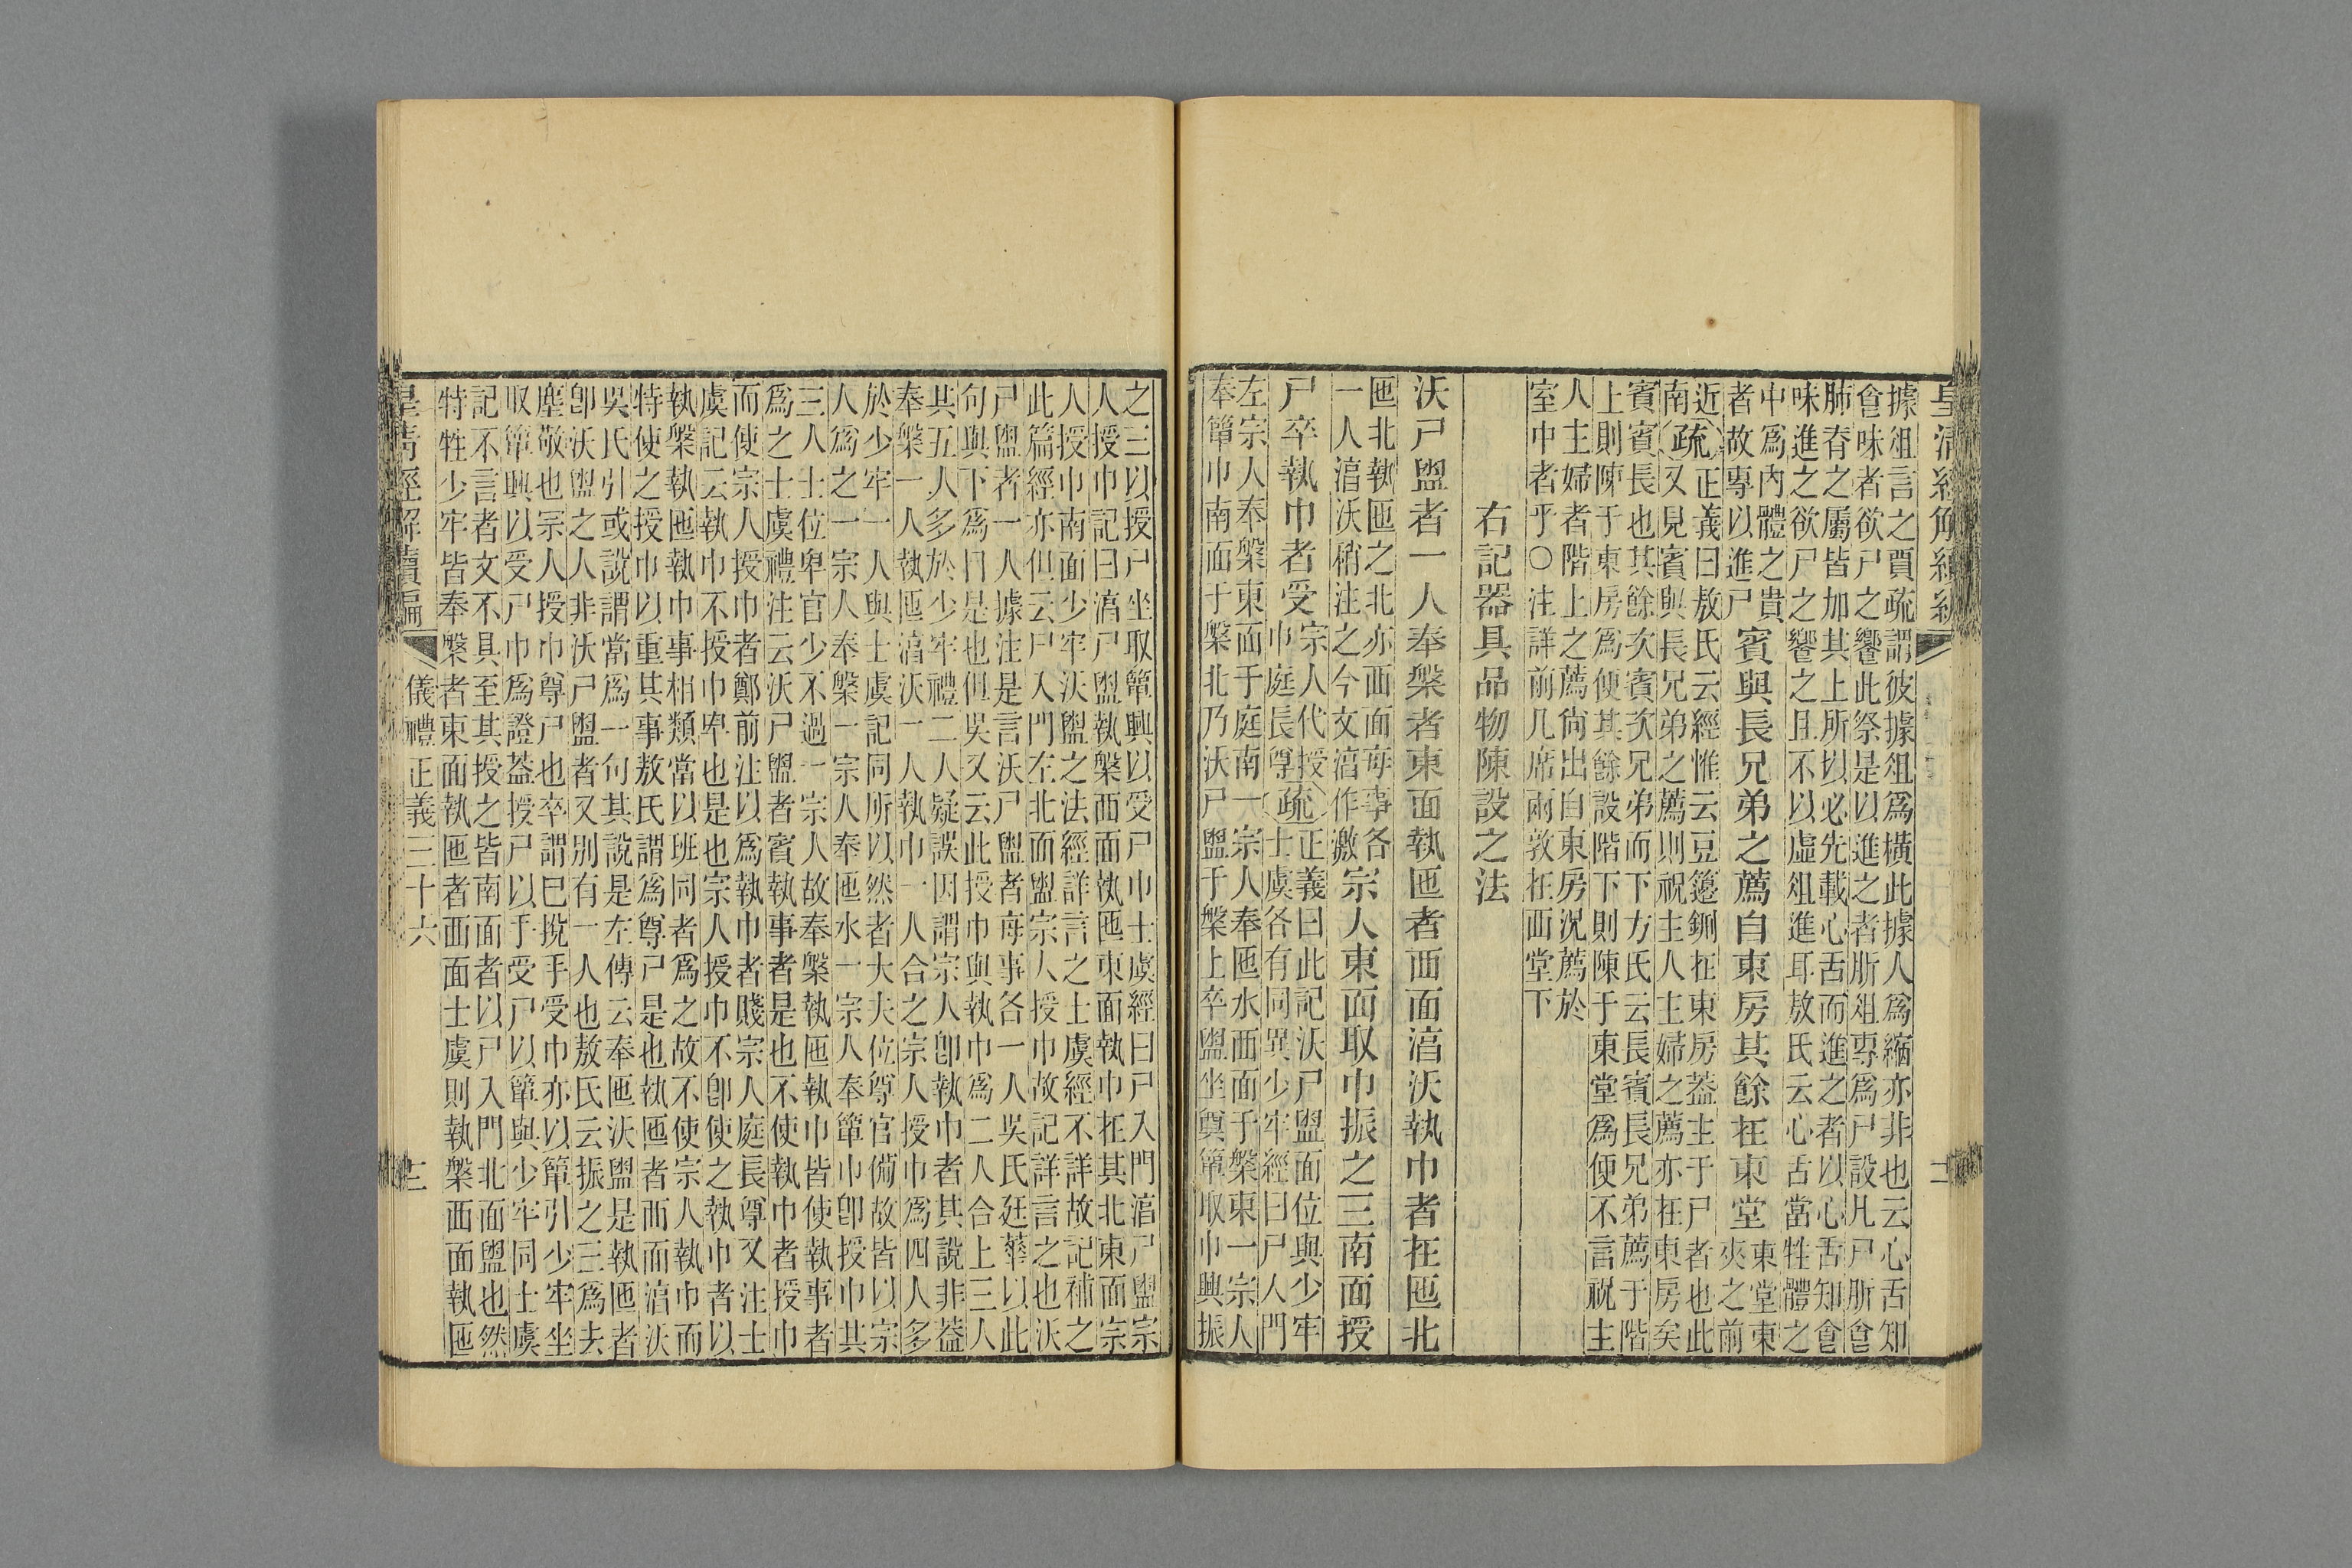 據俎言之賈疏謂彼據俎爲橫此據人爲縮亦非也云心舌知
㑹味者欲尸之饗此祭是以進之者肵俎專爲尸設凡尸肵㑹
肺脊之屬皆加其上所以必先載心舌而進之者以心舌知㑹
味進之欲尸之饗之且不以虛俎進耳敖氏云心舌當牲體之
中爲內體之貴
者故專以進尸
賓與長兄弟之薦自東房其餘在東堂
東堂東
夾之前
近
南
疏
正義曰敖氏云經惟云豆籩鉶在東房葢主于尸者也此
又見賓與長兄弟之薦則祝主人主婦之薦亦在東房矣
賓賓長也其餘次賓次兄弟而下方氏云長賓長兄弟薦于階
上則陳于東房爲便其餘設階下則陳于東堂爲便不言祝主
人主婦者階上之薦尙出自東房況薦於
室中者乎○注詳前几席兩敦在西堂下
右記器具品物陳設之法
沃尸盥者一人奉槃者東面執匜者西面淯沃執巾者在匜北
匜北執匜之北亦西面每事各
一人淯沃稍注之今文淯作激
宗人東面取巾振之三南面授
尸卒執巾者受
宗人代授
巾庭長尊
疏
正義曰此記沃尸盥面位與少牢
士虞各有同異少牢經曰尸入門
左宗人奉槃東面于庭南一宗人奉匜水西面于槃東一宗人
奉簞巾南面于槃北乃沃尸盥于槃上卒盥坐奠簞取巾興振
之三以授尸坐取簞興以受尸巾士虞經曰尸入門淯尸盥宗
人授巾記曰淯尸盥執槃西面執匜東面執巾在其北東面宗
人授巾南面少牢沃盥之法經詳言之士虞經不詳故記補之
此篇經亦但云尸入門左北面盥宗人授巾故記詳言之也沃
尸盥者一人據注是言沃尸盥者每事各一人吳氏廷華以此
句與下爲目是也但吳又云此授巾與執巾爲二人合上三人
其五人多於少牢禮二人疑誤因謂宗人卽執巾者其說非葢
奉槃一人執匜淯沃一人執巾一人合之宗人授巾爲四人多
於少牢一人與士虞記同所以然者大夫位尊官備故皆以宗
人爲之一宗人奉槃一宗人奉匜水一宗人奉簞巾卽授巾其
三人士位卑官少不過一宗人故奉槃執匜執巾皆使執事者
爲之士虞禮注云沃尸盥者賓執事者是也不使執巾者授巾
而使宗人授巾者鄭前注以爲執巾者賤宗人庭長尊又注士
虞記云執巾不授巾卑也是也宗人授巾不卽使之執巾者以
執槃執匜執巾事相類當以班同者爲之故不使宗人執巾而
特使之授巾以重其事敖氏謂爲尊尸是也執匜者西面淯沃
吳氏引或說謂當爲一句其說是左傳云奉匜沃盥是執匜者
卽沃盥之人非沃尸盥者又別有一人也敖氏云振之三爲去
塵敬也宗人授巾尊尸也卒謂巳挩手受巾亦以簞引少牢坐
取簞興以受尸巾爲證葢授尸以手受尸以簞與少牢同士虞
記不言者文不具至其授之皆南面者以尸入門北面盥也然
特牲少牢皆奉槃者東面執匜者西面士虞則執槃西面執匜
皇清經解續編
儀禮正義三十六